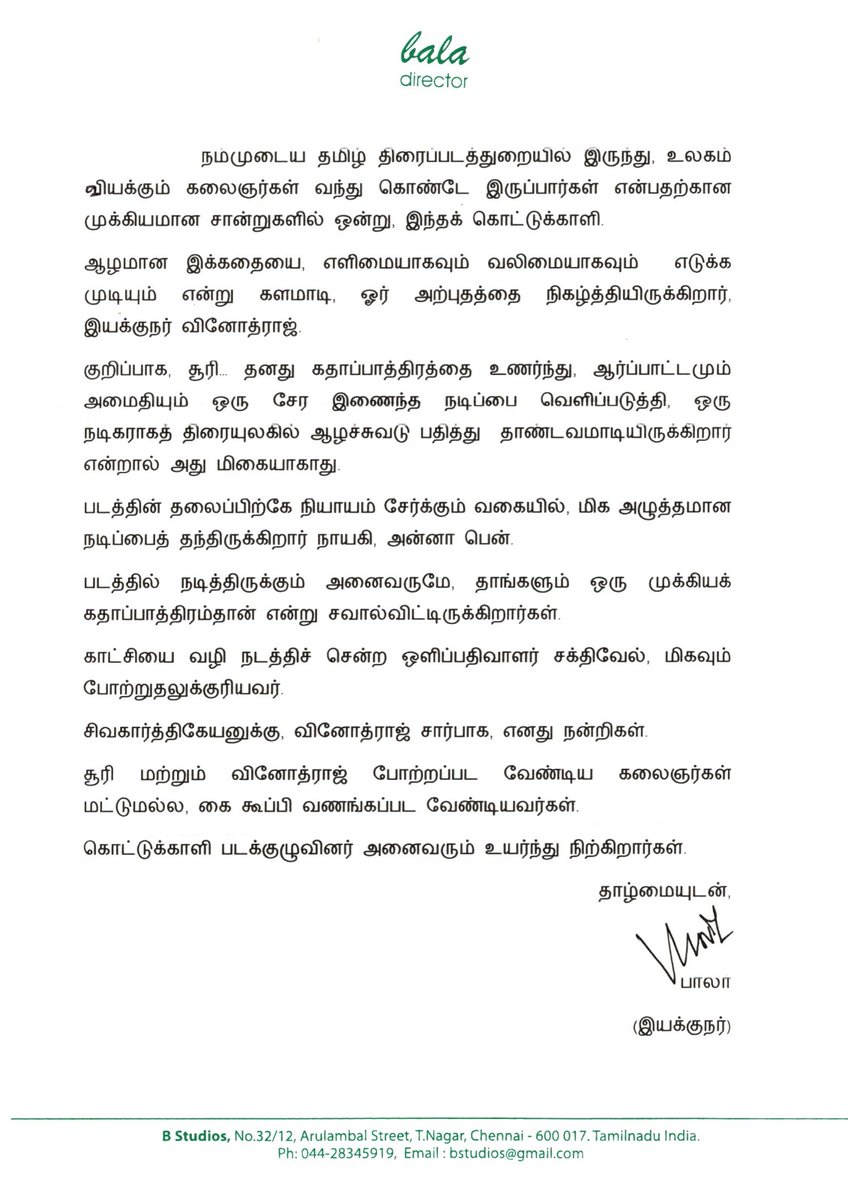 bala
director
நம்முடைய தமிழ் திரைப்படத்துறையில் இருந்து, உலகம்
வியக்கும் கலைஞர்கள் வந்து கொண்டே இருப்பார்கள் என்பதற்கான
முக்கியமான சான்றுகளில் ஒன்று, இந்தக் கொட்டுக்காளி.
ஆழமான இக்கதையை, எளிமையாகவும் வலிமையாகவும் எடுக்க
முடியும் என்று களமாடி, ஓர் அற்புதத்தை நிகழ்த்தியிருக்கிறார்,
இயக்குநர் வினோத்ராஜ்.
குறிப்பாக, சூரி... தனது கதாப்பாத்திரத்தை உணர்ந்து, ஆர்ப்பாட்டமும்
அமைதியும் ஒரு சேர இணைந்த நடிப்பை வெளிப்படுத்தி, ஒரு
நடிகராகத் திரையுலகில் ஆழச்சுவடு பதித்து தாண்டவமாடியிருக்கிறார்
என்றால் அது மிகையாகாது.
படத்தின் தலைப்பிற்கே நியாயம் சேர்க்கும் வகையில், மிக அழுத்தமான
நடிப்பைத் தந்திருக்கிறார் நாயகி, அன்னா பென்.
படத்தில் நடித்திருக்கும் அனைவருமே, தாங்களும் ஒரு முக்கியக்
கதாப்பாத்திரம்தான் என்று சவால்விட்டிருக்கிறார்கள்.
காட்சியை வழி நடத்திச் சென்ற ஒளிப்பதிவாளர் சக்திவேல், மிகவும்
போற்றுதலுக்குரியவர்.
சிவகார்த்திகேயனுக்கு, வினோத்ராஜ் சார்பாக, எனது நன்றிகள்.
சூரி மற்றும் வினோத்ராஜ் போற்றப்பட வேண்டிய கலைஞர்கள்
மட்டுமல்ல, கை கூப்பி வணங்கப்பட வேண்டியவர்கள்.
கொட்டுக்காளி படக்குழுவினர் அனைவரும் உயர்ந்து நிற்கிறார்கள்.
தாழ்மையுடன்,
பாலா
(இயக்குநர்)
B Studios, No.32/12, Arulambal Street, T.Nagar, Chennai - 600 017. Tamilnadu India.
Ph: 044-28345919, Email : bstudios@gmail.com